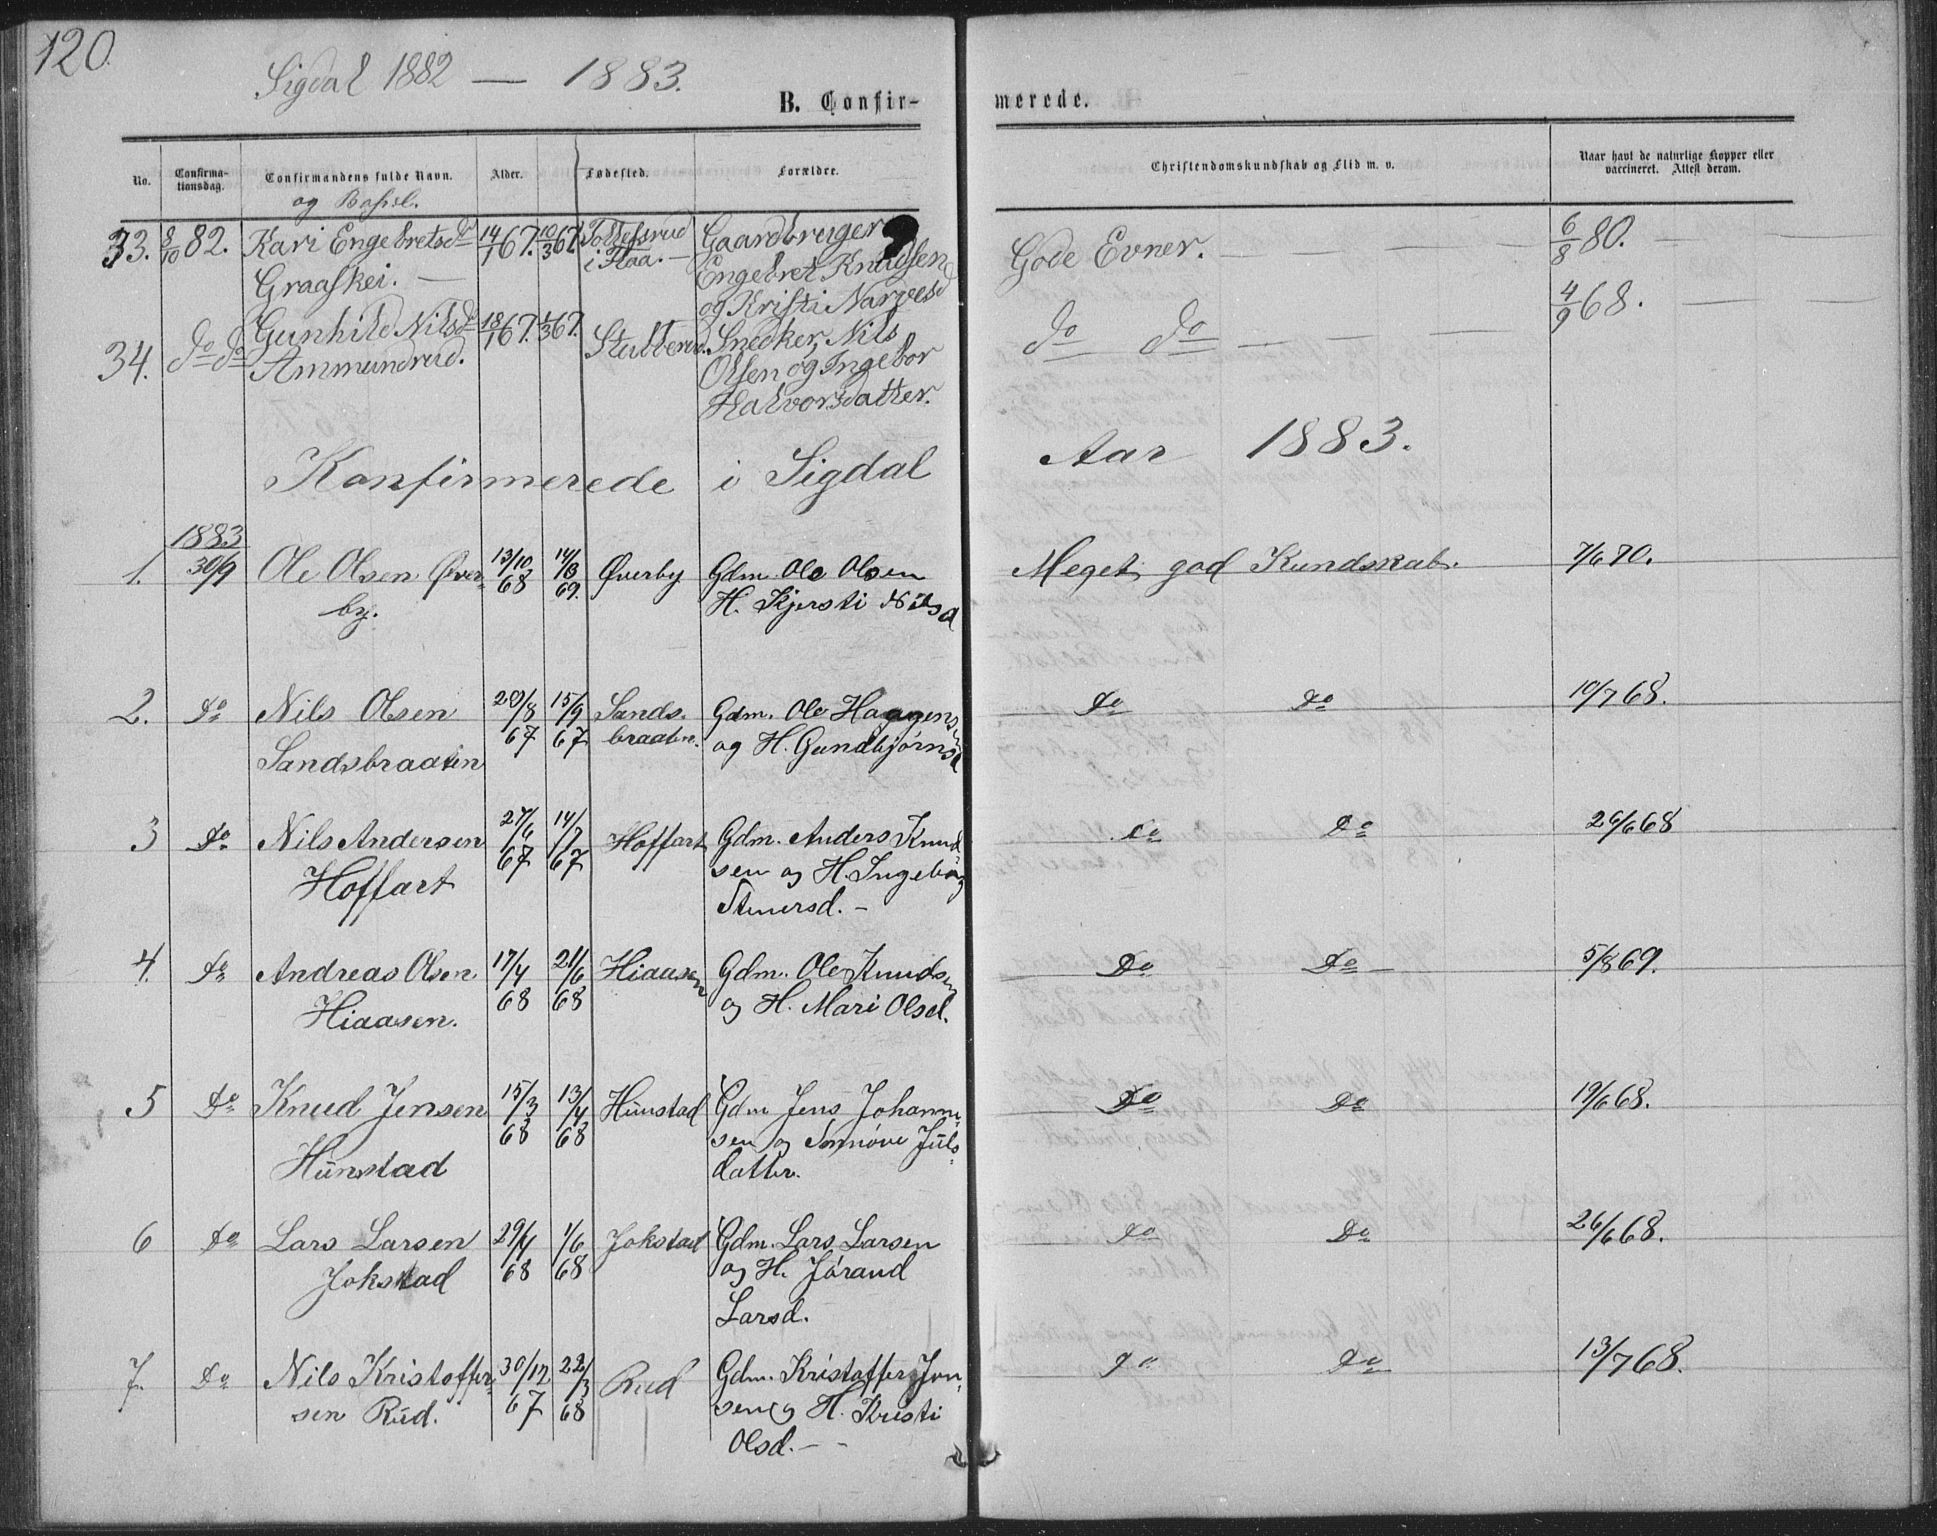 120.
Sigdal 1882 — 1883.
B. Confirmerede.
No. Confirmationsdag. Confirmandens fulde Navn. Alder. Fødested. Forældre. Christendomskundskab og Flid m. v. Naar havt de naturlige Kopper eller vaccineret. Attest derom.
og Bopæl.
33. 8/10 82. Kari Engebretsdr 14/1 67. 10/3 67. Tollefsrud Gaardbruger Gode Evner. 6/8 80.
Graaskei. — i Flaa. — Engebret Knudsen
og Kristi Narvesd
34. do do Gunhild Nilsdr 18/1 67. 1/3 67. Stubberud. Snedker Nils do do 4/9 68.
Ammundrud. Olsen og Ingebor
Halvorsdatter.
Konfirmerede i Sigdal Aar 1883.
1883
1. 30/9 Ole Olsen Øver- 13/10 68 14/3 69. Øverby Gdm. Ole Olsen Meget god Kundskab. 7/6 70.
by. H. Kjersti Nilsd
2. Do Nils Olsen 20/8 67 15/9 67 Sands- Gdm. Ole Haagens Do Do 10/7 68.
Sandsbraaten braaten. og H. Gundbjørnsd
3 Do Nils Andersen 27/6 67 14/7 67 Hoffart Gdm. Anders Knud Do Do 26/6 68
Hoffart sen og H. Ingeborg
Stenersd. —
4. Do Andreas Olsen 17/4 68 21/6 68 Hiaasen Gdm. Ole Knudsen Do Do 5/8 69.
Hiaasen. og H. Mari Olsd.
5 Do Knud Jensen 15/3 68 13/4 68 Hunstad Gdm Jens Johann- Do Do 19/6 68.
Hunstad sen og Sønnøve Juls-
datter.
6 Do Lars Larsen 29/4 68 1/6 68 Jokstad Gdm. Lars Larsen Do Do 26/6 68.
Jokstad og H. Jørand
Larsd.
7. Do Nils Kristoffer- 30/12 67 22/3 68 Rud Gdm. Kristoffer Jon- Do Do 13/7 68.
sen Rud. sen og H. Kristi
Olsd. — -